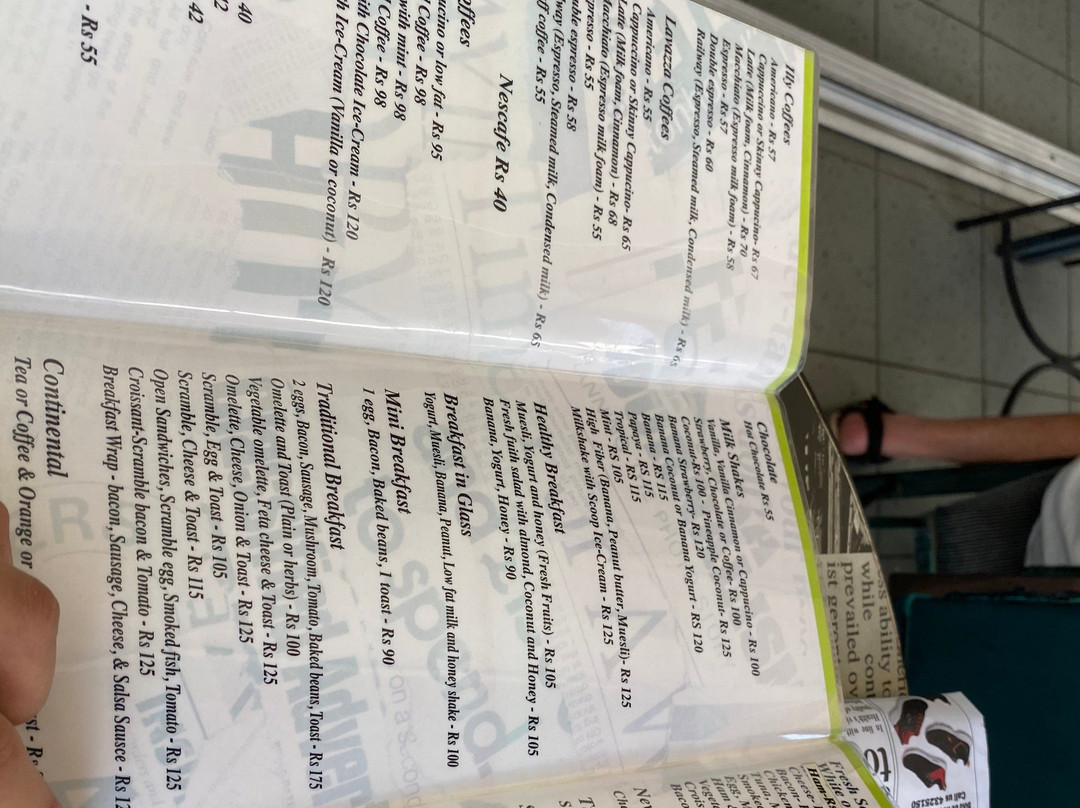 Illy Coffees
Americano - Rs 57
Cappuccino or Skinny Cappucino- Rs 67
Latte (Milk foam, Cinnamon) - Rs 70
Macchiato (Espresso milk foam) - Rs 58
Espresso - Rs 57
Double espresso - Rs 60
Railway (Espresso, Steamed milk, Condensed milk) - Rs 65
Lavazza Coffees
Americano - Rs 55
Cappuccino or Skinny Cappucino- Rs 65
Latte (Milk foam, Cinnamon) - Rs 68
Macchiato (Espresso milk foam) - Rs 55
presso - Rs 55
ble espresso - Rs 58
way (Espresso, Steamed milk, Condensed milk) - Rs 65
ff coffee - Rs 55
Nescafe Rs 40
offees
ucino or low fat - Rs 95
Coffee - Rs 98
with mint - Rs 98
Coffee - Rs 98
th Chocolate Ice-Cream - Rs 120
h Ice-Cream (Vanilla or coconut) - Rs 120
40
2
42
- Rs 55
Chocolate
Hot Chocolate Rs 55
Milk Shakes
Vanilla, Vanilla Cinnamon or Cappucino - Rs 100
Strawberry, Chocolate or Coffee- Rs 100
Coconut-RS 100 - Pineapple Coconut- Rs 125
Banana Strawberry- Rs 120
Banana Coconut or Banana Yogurt - RS 120
Banana - RS 115
Papaya - RS 115
Tropical - RS 115
Mint - RS 105
High Fiber (Banana, Peanut butter, Muesli)- Rs 125
Milkshake with Scoop Ice-Cream - Rs 125
Healthy Breakfast
Muesli, Yogurt and honey (Fresh Fruits) - Rs 105
Fresh fruith salad with almond, Coconut and Honey - Rs 105
Banana, Yogurt, Honey - Rs 90
Breakfast in Glass
Yogurt, Muesli, Banana, Peanut, Low fat milk and honey shake - Rs 100
Mini Breakfast
1 egg, Bacon, Baked beans, 1 toast - Rs 90
Traditional Breakfast
2 eggs, Bacon, Sausage, Mushroom, Tomato, Baked beans, Toast - Rs 175
Omelette and Toast (Plain or herbs) - Rs 100
Vegetable omelette, Feta cheese & Toast - Rs 125
Omelette, Cheese, Onion & Toast - Rs 125
Scramble, Egg & Toast - Rs 105
Scramble, Cheese & Toast - Rs 115
Open Sandwiches, Scramble egg, Smoked fish, Tomato - Rs 125
Croissant-Scramble bacon & Tomato - Rs 125
Breakfast Wrap - bacon, Sausage, Cheese, & Salsa Sausce - Rs 12
Continental
Tea or Coffee & Orange or
st - Rs
Fresh S
ess ability to
while
prevailed ov
to
Call us 4325150